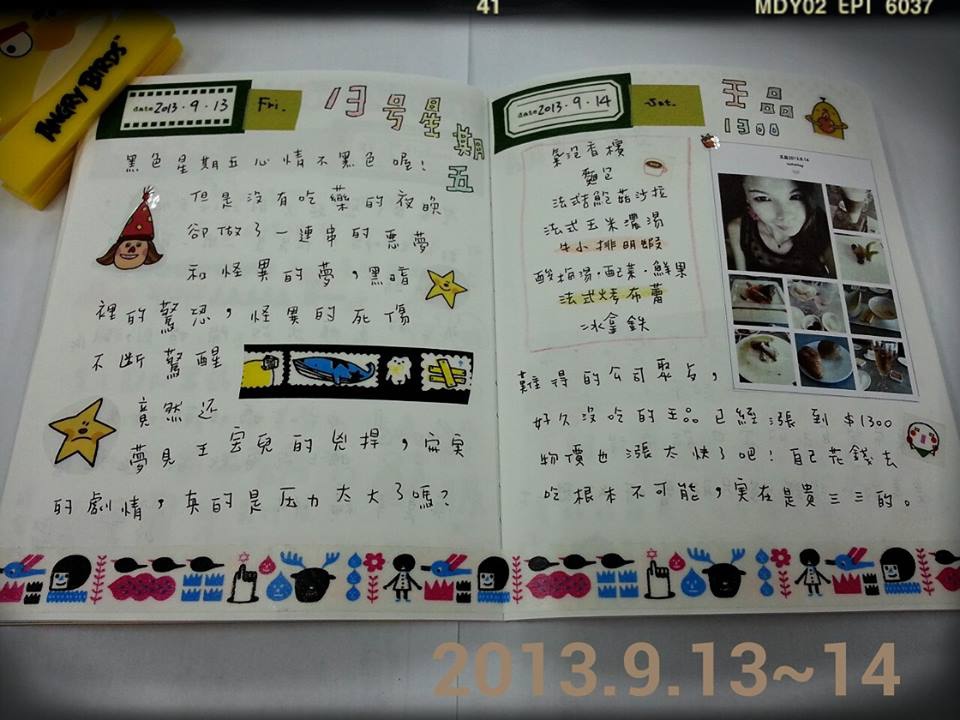 41
MDY02 EPI 6037
ANGRY BIRDS™
date 2013.9.13
Fri.
13号星期五
黑色星期五心情不黑色喔!
但是沒有吃藥的夜晚
卻做了一連串的惡夢
和怪異的夢,黑暗
裡的驚恐,怪異的死傷
不斷驚醒
竟然还
夢見王雲兒的兇捍,宛実
的劇情,真的是压力太大了嗎?
date 2013.9.14
Sat.
王品
1300
氣泡香檳
麵包
法式鮑菇沙拉
法式玉米濃湯
牛小排明蝦
酸梅湯.配菜.鮮果
法式烤布蕾
冰拿鉄
難得的公司聚点,
好久沒吃的王品已經漲到$1300
物價也漲太快了吧!自己花錢去
吃根本不可能,実在是貴三三的。
2013.9.13~14